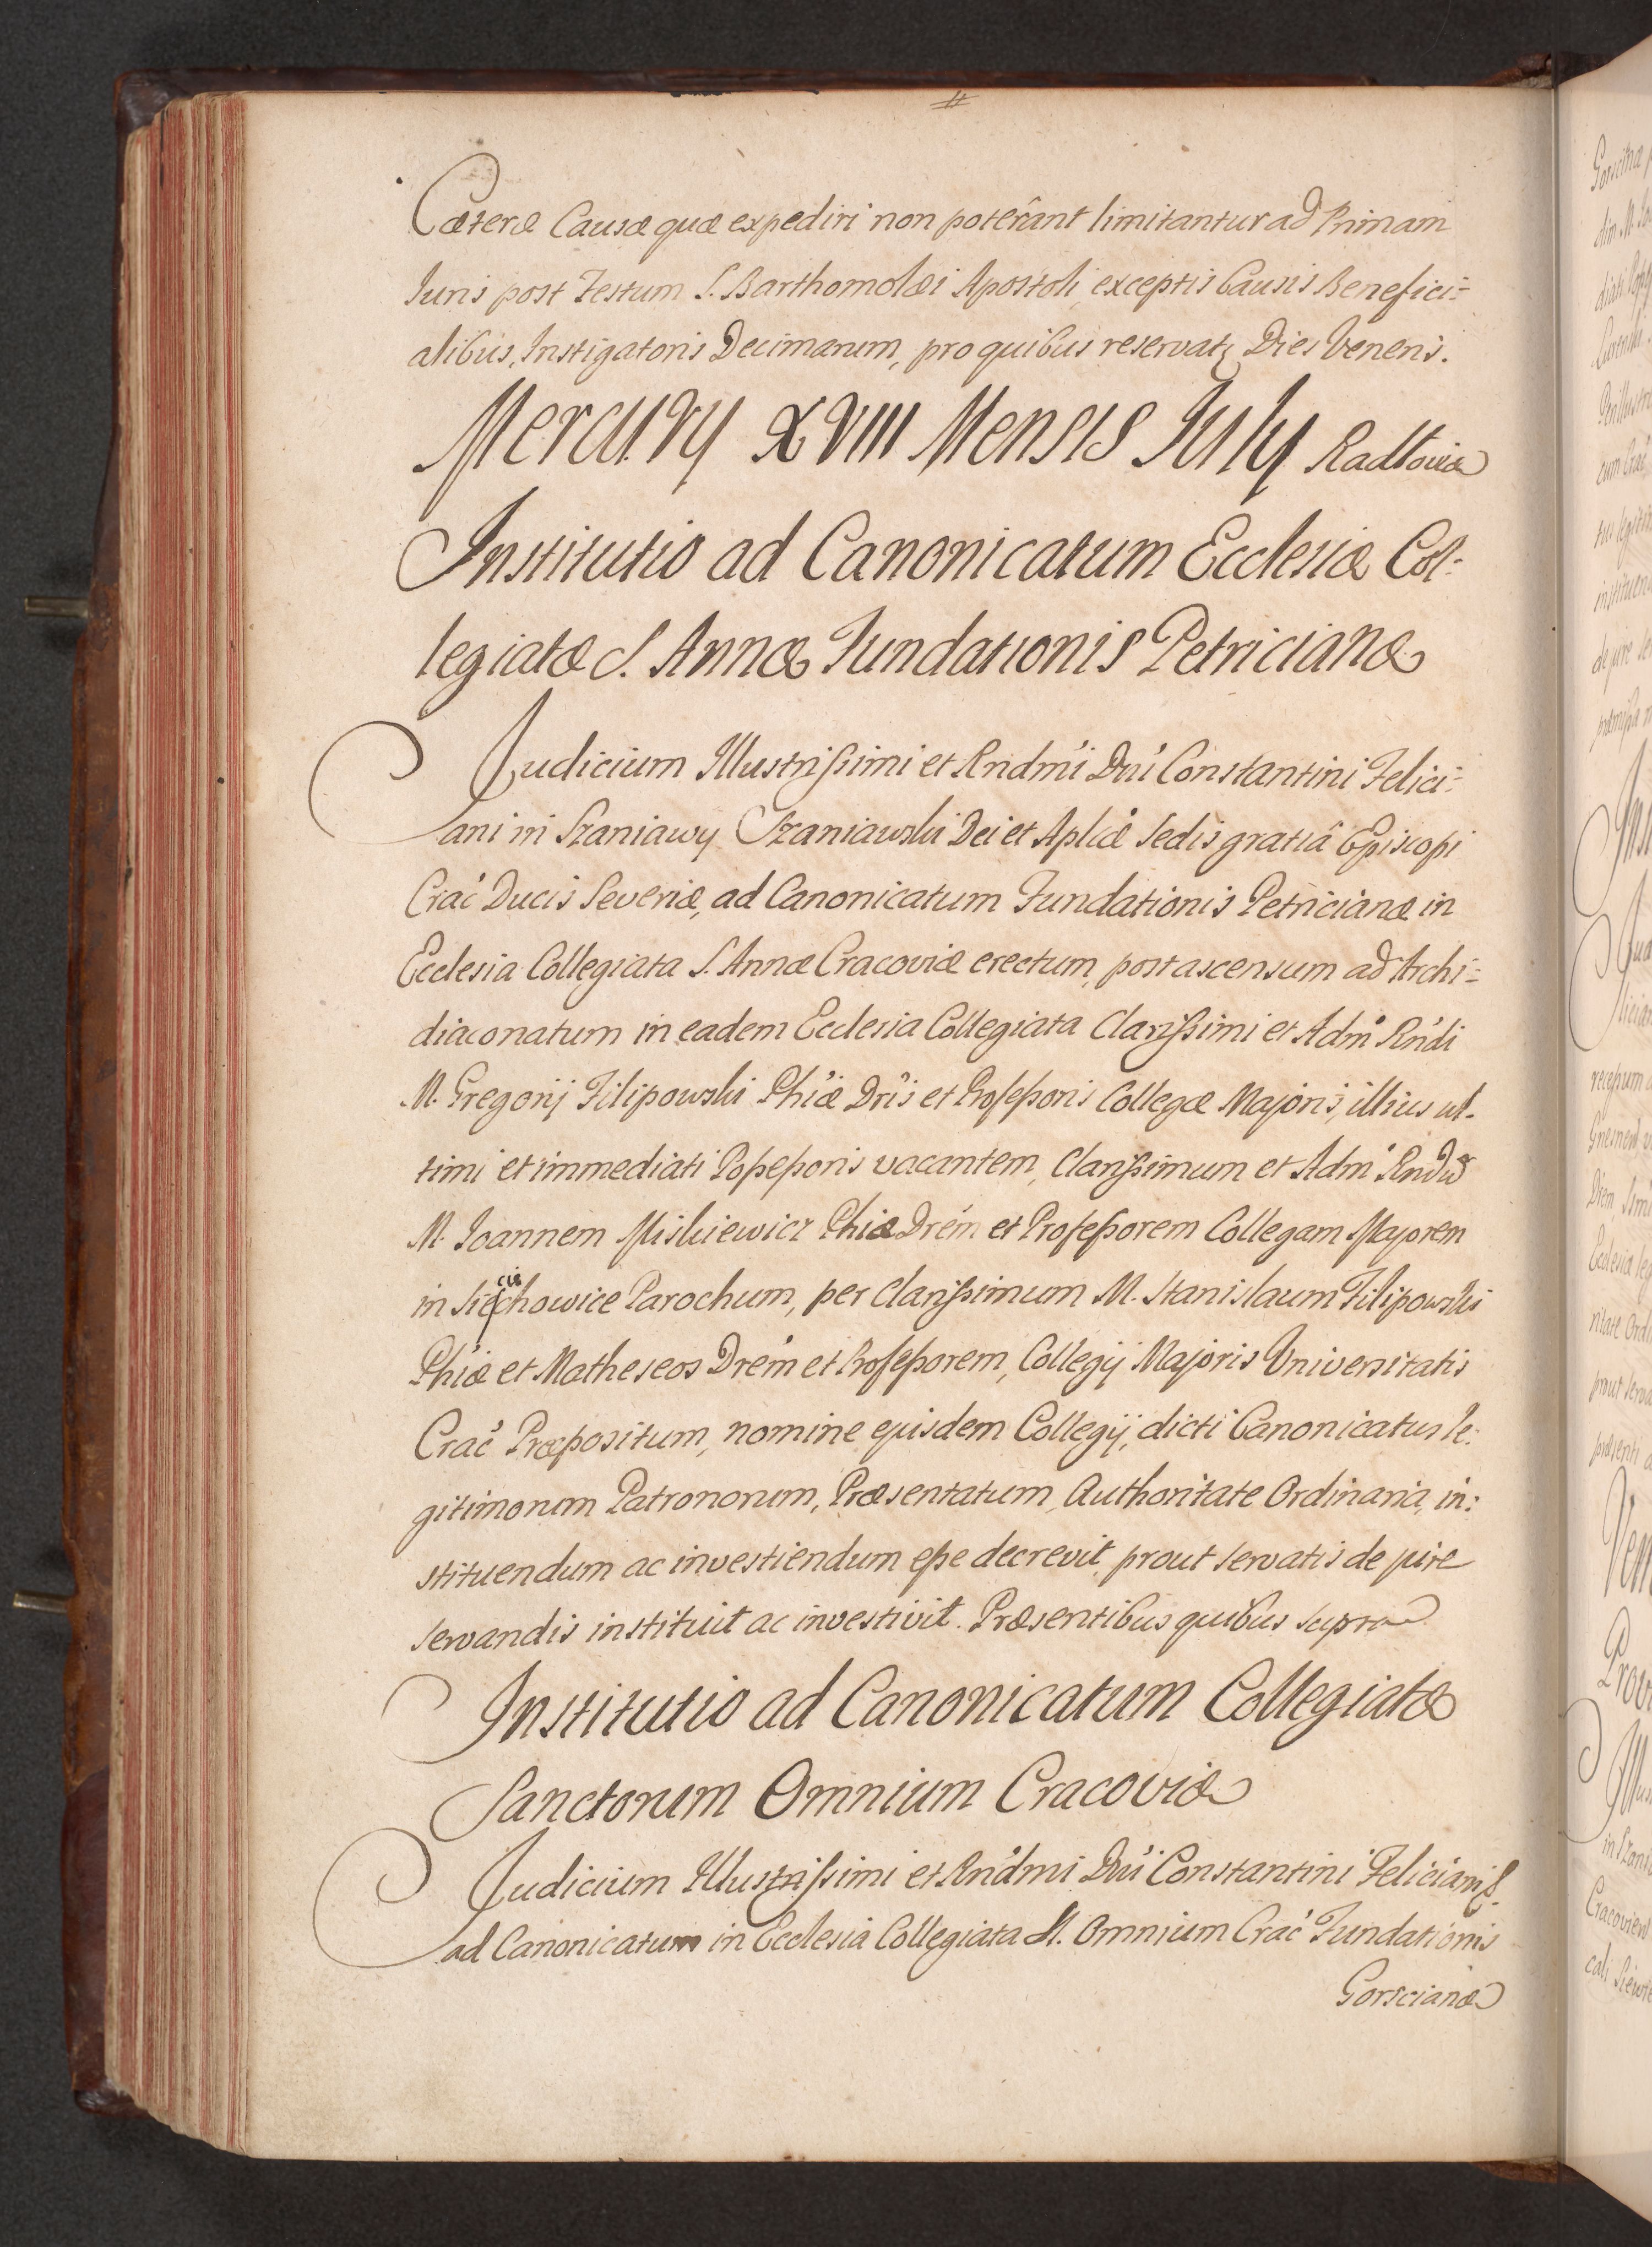 Cæteræ Causæ quæ expediri non poterant limitantur ad Primam
Iuris post Festum S. Barthomolæi Apostoli, exceptis Causis Benefici=
alibus, Instigatoris Decimarum, pro quibus reservatr Dies Veneris.
Mercurÿ XVIII Mensis Julÿ Radłoviæ
Institutio ad Canonicatum Ecclesiæ Col-
legiatæ S. Annæ Fundationis Petricianæ
Judicium Illustrissimi et Rndm̃i Dn̑i Constantini Felici=
ani in Szaniawÿ Szaniawski Dei et Aplicæ Sedis gratiâ Episcopi
Crac̃ Ducis Severiæ, ad Canonicatum Fundationis Petricianæ in
Ecclesia Collegiata S. Annæ Cracoviæ erectum, post ascensum ad Archi=
diaconatum in eadem Ecclesia Collegiata Clarissimi et Adm̃ Rñdi
M. Gregorij Filipowski Phiæ Dris et Professoris Collegæ Majoris, illius ul-
timi et immediati Possessoris vacantem, Clarissimum et Adm̃ Rndũ
M. Joannem Miskiewicz Phiæ Drem et Professorem Collegam Majorem
Parochum, per Clarissimum M. Stanislaum Filipowski
Phiæ et Matheseos Drem et Professorem, Collegij Majoris Universitatis
Crac̃ Præpositum, nomine ejusdem Collegij, dicti Canonicatus le-
gitimorum Patronorum, Præsentatum, Authoritate Ordinaria, in:
stituendum ac investiendum esse decrevit, prout servatis de jure
servandis instituit ac investivit. Præsentibus quibus supra
Institutio ad Canonicatum Collegiatæ
Sanctorum Omnium Cracoviæ
Judicium Illustrissimi et Rñdmi Dn̑i Constantini Feliciani
ad Canonicatum in Ecclesia Collegiata SS. Omnium Crac̃ Fundationis
Gorscianæ